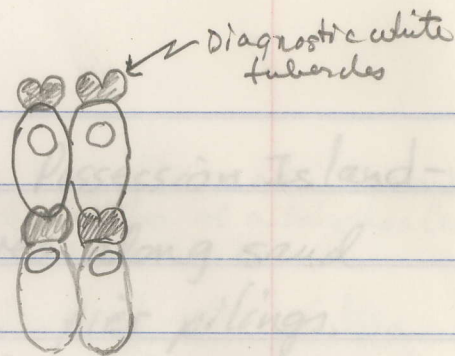 Diagnostic white
tubercles
Possession Island-
long sand
pilings